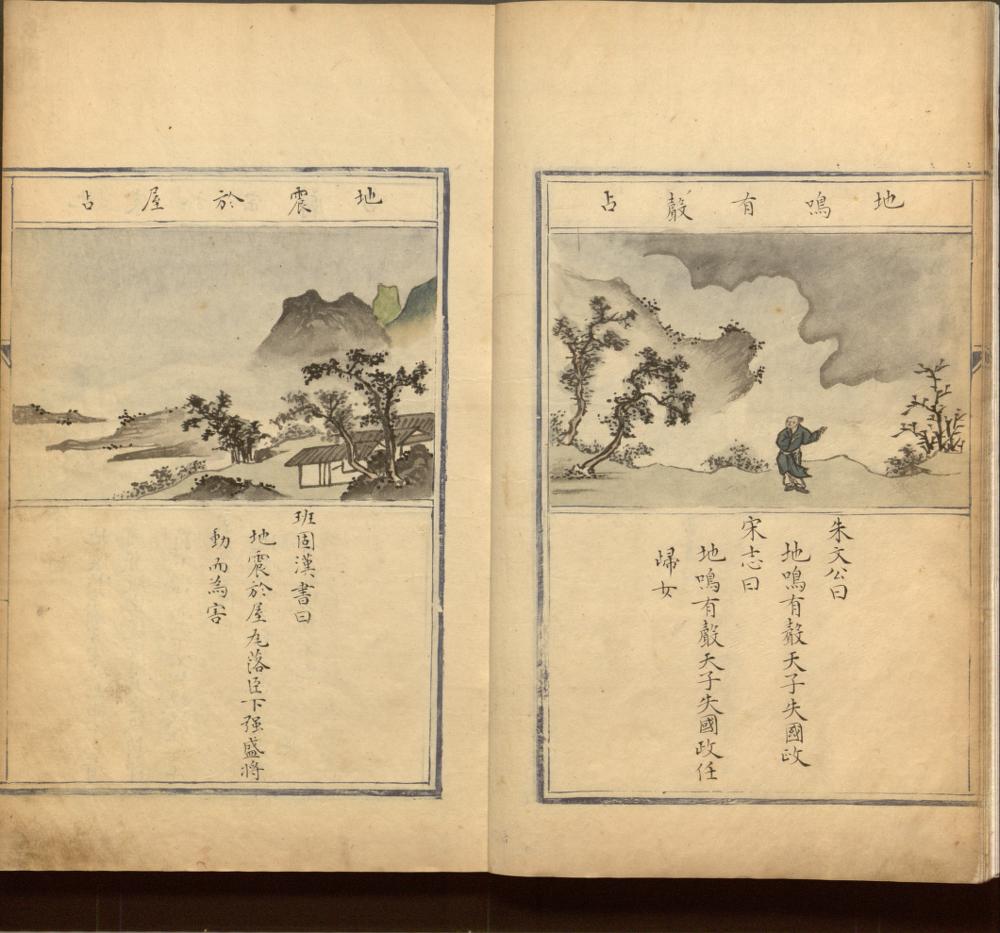 地鳴有聲占
朱文公曰
地鳴有聲天子失國政
宋志曰
地鳴有聲天子失國政任
歸女
地震於屋占
班固漢書曰
地震於屋瓦落臣下强盛将
動而為害